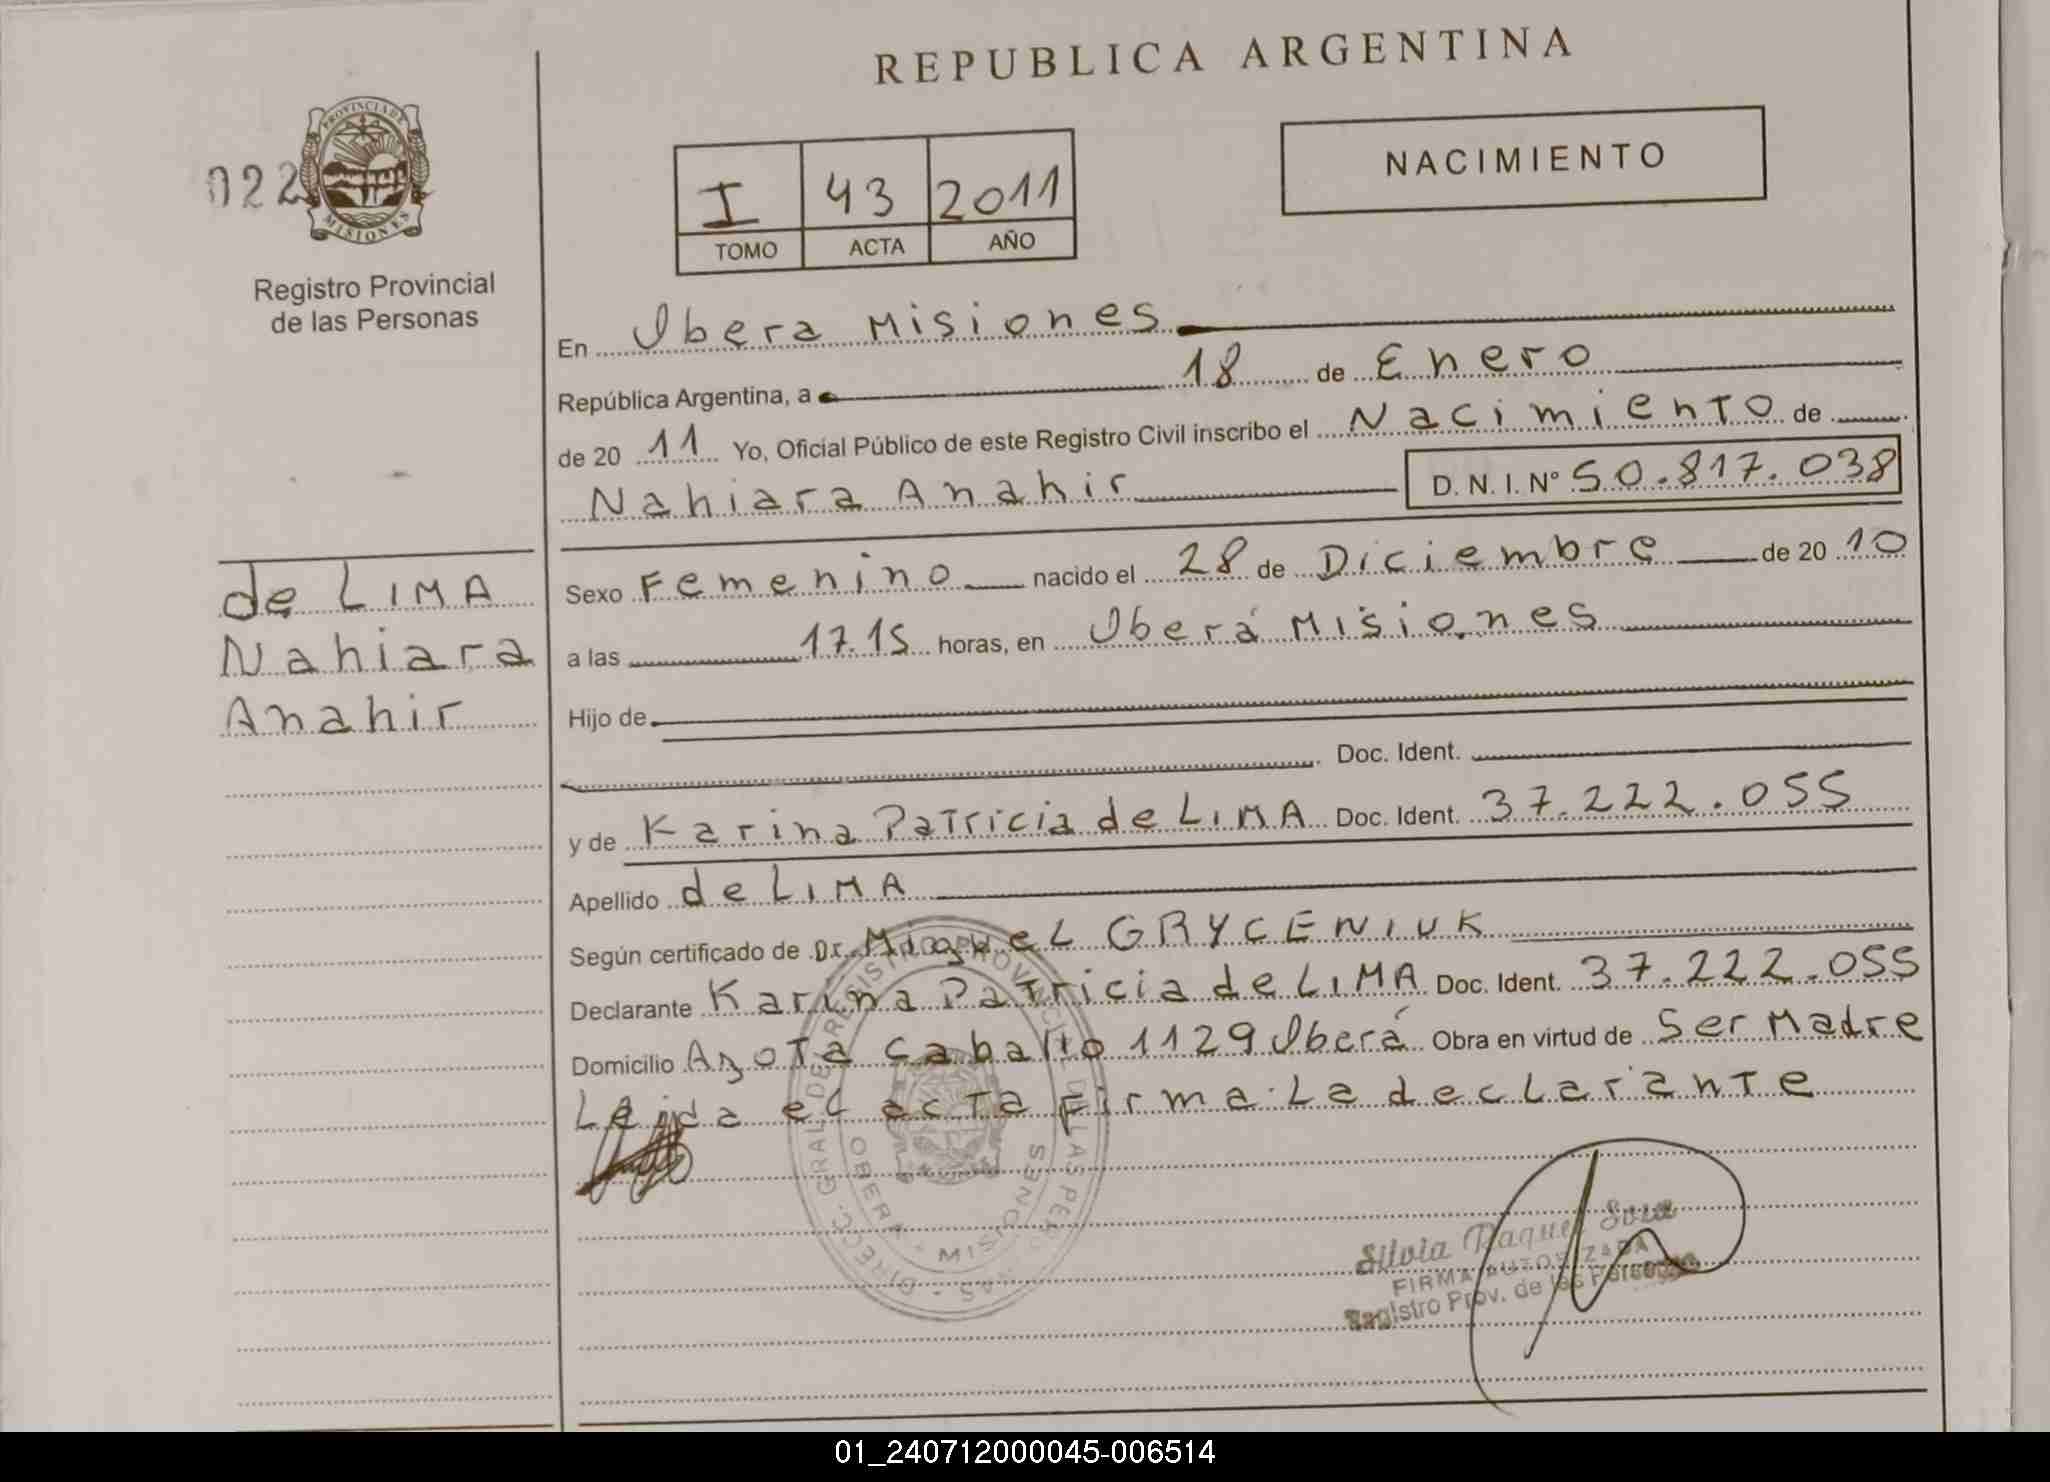 REPUBLICA ARGENTINA
022
PROVINCIA DE
MISIONES
Registro Provincial
de las Personas
I 43 2011
TOMO ACTA AÑO
NACIMIENTO
En Obera Misiones
República Argentina, a 18 de Enero
de 20 11 Yo, Oficial Público de este Registro Civil inscribo el Nacimiento de
Nahiara Anahir D. N. I. Nº 50.817.038
de LIMA
Nahiara
Anahir
Sexo Femenino nacido el 28 de Diciembre de 20 10
a las 17.15 horas, en Oberá Misiones
Hijo de
Doc. Ident.
y de Karina Patricia de LIMA Doc. Ident. 37.222.055
Apellido de LIMA
Según certificado de Dr. Miguel GRYCENIUK
Declarante Karina Patricia de LIMA Doc. Ident. 37.222.055
Domicilio Azota Caballo 1129 Oberá Obra en virtud de Ser Madre
Leida el acta Firma La declarante
OBERA - MISIONES
Silvia Raquel Sosa
FIRMA AUTORIZADA
Registro Prov. de las Personas
01_240712000045-006514